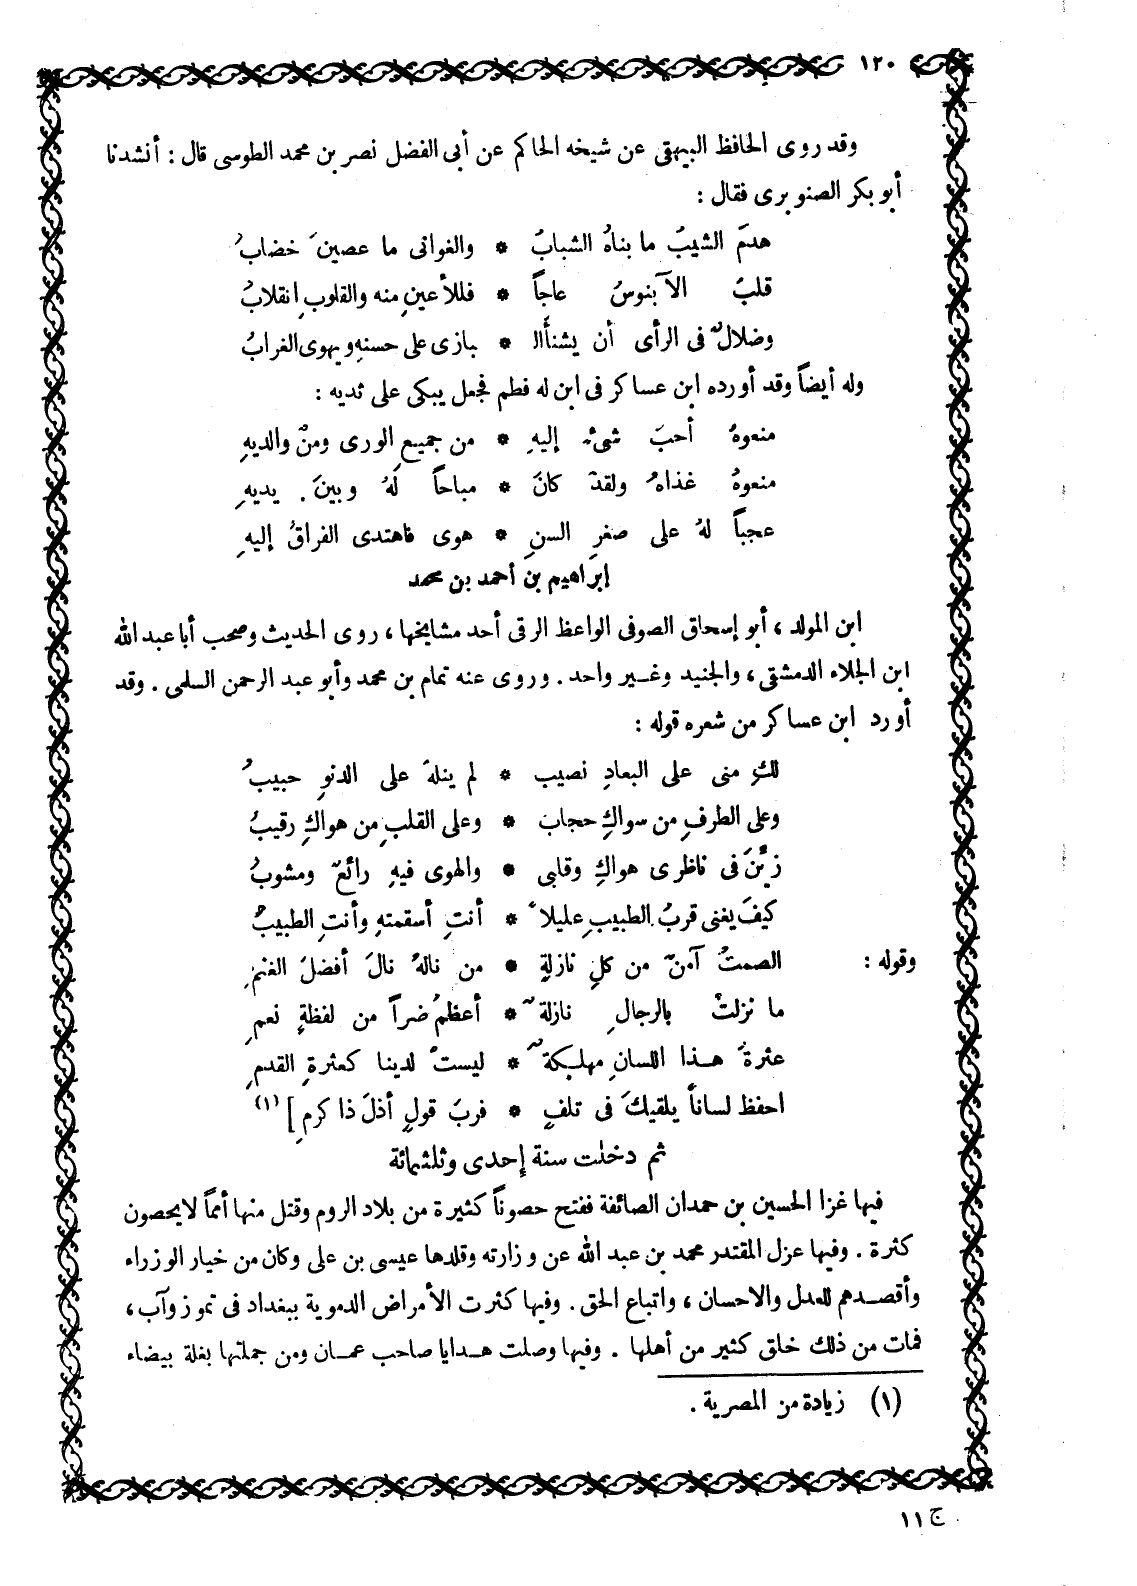 ١٢٠
وقد روى الحافظ البيهقى عن شيخه الحاكم عن أبى الفضل نصر بن محمد الطوسى قال : أنشدنا
أبو بكر الصنوبرى فقال :
هدمَ الشيبُ ما بناهُ الشبابُ * والغوانى ما عصينَ خضابُ
قلبُ الآبنوسُ عاجاً * فللأعينِ منه والقلوبِ انقلابُ
وضلالٌ فى الرأى أن يشنأَ ال * بازى على حسنهِ ويهوى الغرابُ
وله أيضاً وقد أورده ابن عساكر فى ابن له فطم فجعل يبكى على ثديه :
منعوهُ أحبَ شىءٍ إليهِ * من جميعِ الورى ومنْ والديهِ
منعوهُ غذاهُ ولقدْ كانَ * مباحاً لهُ وبينَ يديهِ
عجباً لهُ على صغرِ السنِ * هوى فاهتدى الفراقُ إليهِ
إبراهيم بن أحمد بن محمد
ابن المولد ، أبو إسحاق الصوفى الواعظ الرقى أحد مشايخها ، روى الحديث وصحب أبا عبد الله
ابن الجلاء الدمشقى ، والجنيد وغير واحد . وروى عنه تمام بن محمد وأبو عبد الرحمن السلمى . وقد
أورد ابن عساكر من شعره قوله :
لكِ منى على البعادِ نصيب * لم ينلهُ على الدنوِ حبيبُ
وعلى الطرفِ من سواكِ حجاب * وعلى القلبِ من هواكِ رقيبُ
زينَ فى ناظرى هواكِ وقلبى * والهوى فيهِ رائعٌ ومشوبُ
كيفَ يغنى قربُ الطبيبِ عليلاً * أنتِ أسقمتهِ وأنتِ الطبيبُ
وقوله : الصمتُ آمنٌ من كلِ نازلةٍ * من نالهُ نالَ أفضلَ الغنمِ
ما نزلتْ بالرجالِ نازلةٌ * أعظمُ ضراً من لفظةِ نعمِ
عثرةُ هذا اللسانِ مهلكةٌ * ليستْ لدينا كعثرةِ القدمِ
احفظ لساناً يلقيكَ فى تلفٍ * فربَ قولٍ أذلَ ذا كرمِ ] (١)
ثم دخلت سنة إحدى وثلثمائة
فيها غزا الحسين بن حمدان الصائفة ففتح حصوناً كثيرة من بلاد الروم وقتل منها أمماً لا يحصون
كثرة . وفيها عزل المقتدر محمد بن عبد الله عن وزارته وقلدها عيسى بن على وكان من خيار الوزراء
وأقصدهم للعدل والاحسان ، واتباع الحق . وفيها كثرت الأمراض الدموية ببغداد فى تموز وآب ،
فمات من ذلك خلق كثير من أهلها . وفيها وصلت هدايا صاحب عمان ومن جملتها بغلة بيضاء
(١) زيادة من المصرية .
ج ١١